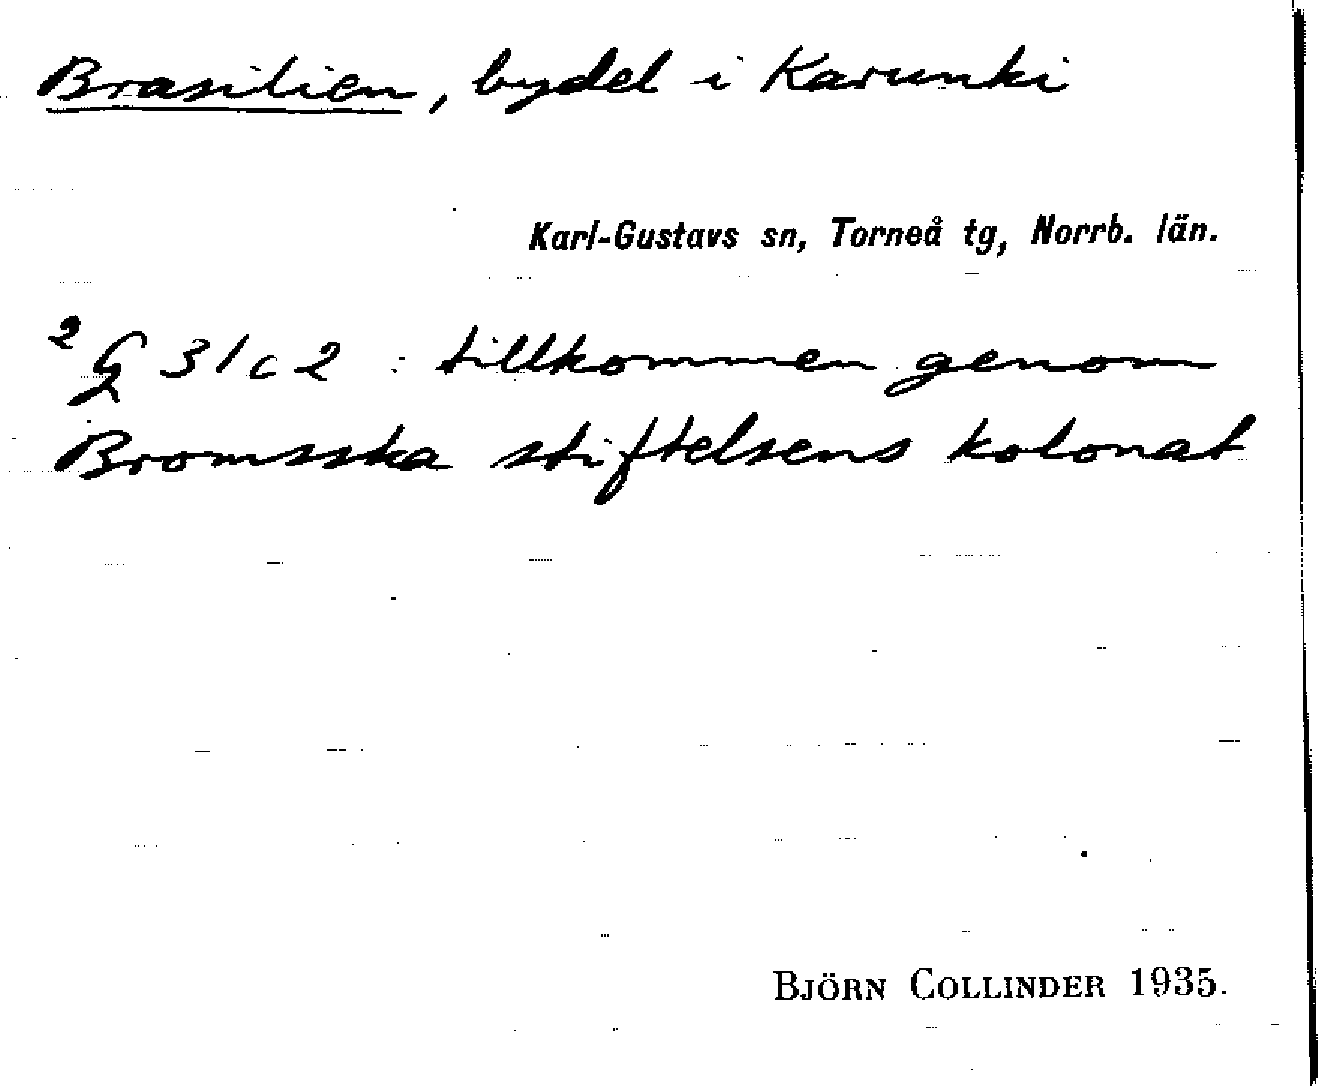 Brasilien, bydel i Karunki
Karl-Gustavs sn, Torneå tg, Norrb. län.
² G 31c2 : tillkommen genom
Bromsska stiftelsens kolonat
BJÖRN COLLINDER 1935.